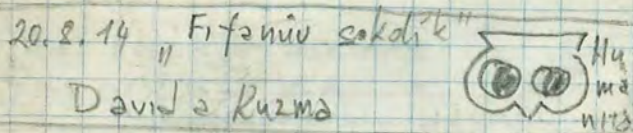 20.8.14 „Fifanův sokolík"
David a Kuzma
Hu
ma
nita